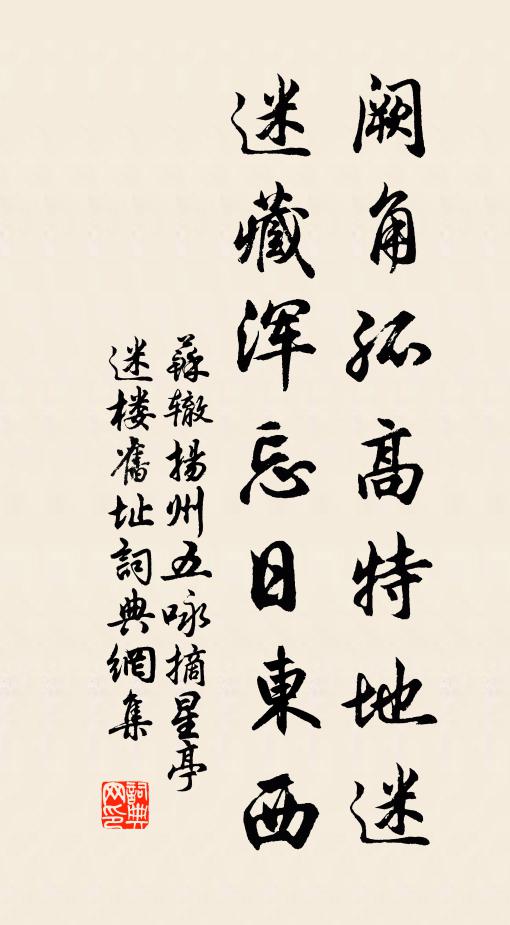 阙角孤高特地迷
迷藏浑忘日東西
蘇辙揚州五咏摘星亭
迷楼舊址詞典網集
詞典网印